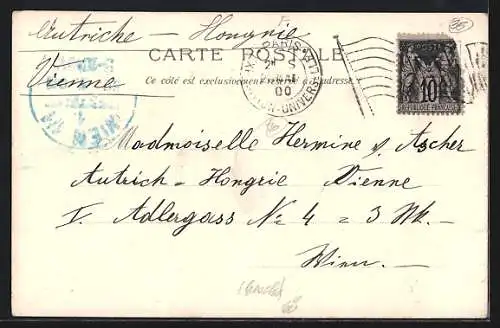 Autriche – Hongrie
CARTE POSTALE
Vienne
Ce côté est exclusivement réservé à l'adresse
PARIS
00
EXPOSITION-UNIVERSELLE
POSTE
10
REPUBLIQUE FRANÇAISE
WIEN 1/1
Mademoiselle Hermine v. Ascher
Autrich – Hongrie Vienne
I. Adlergass No 4 = 3 Stk. –
Wien. –